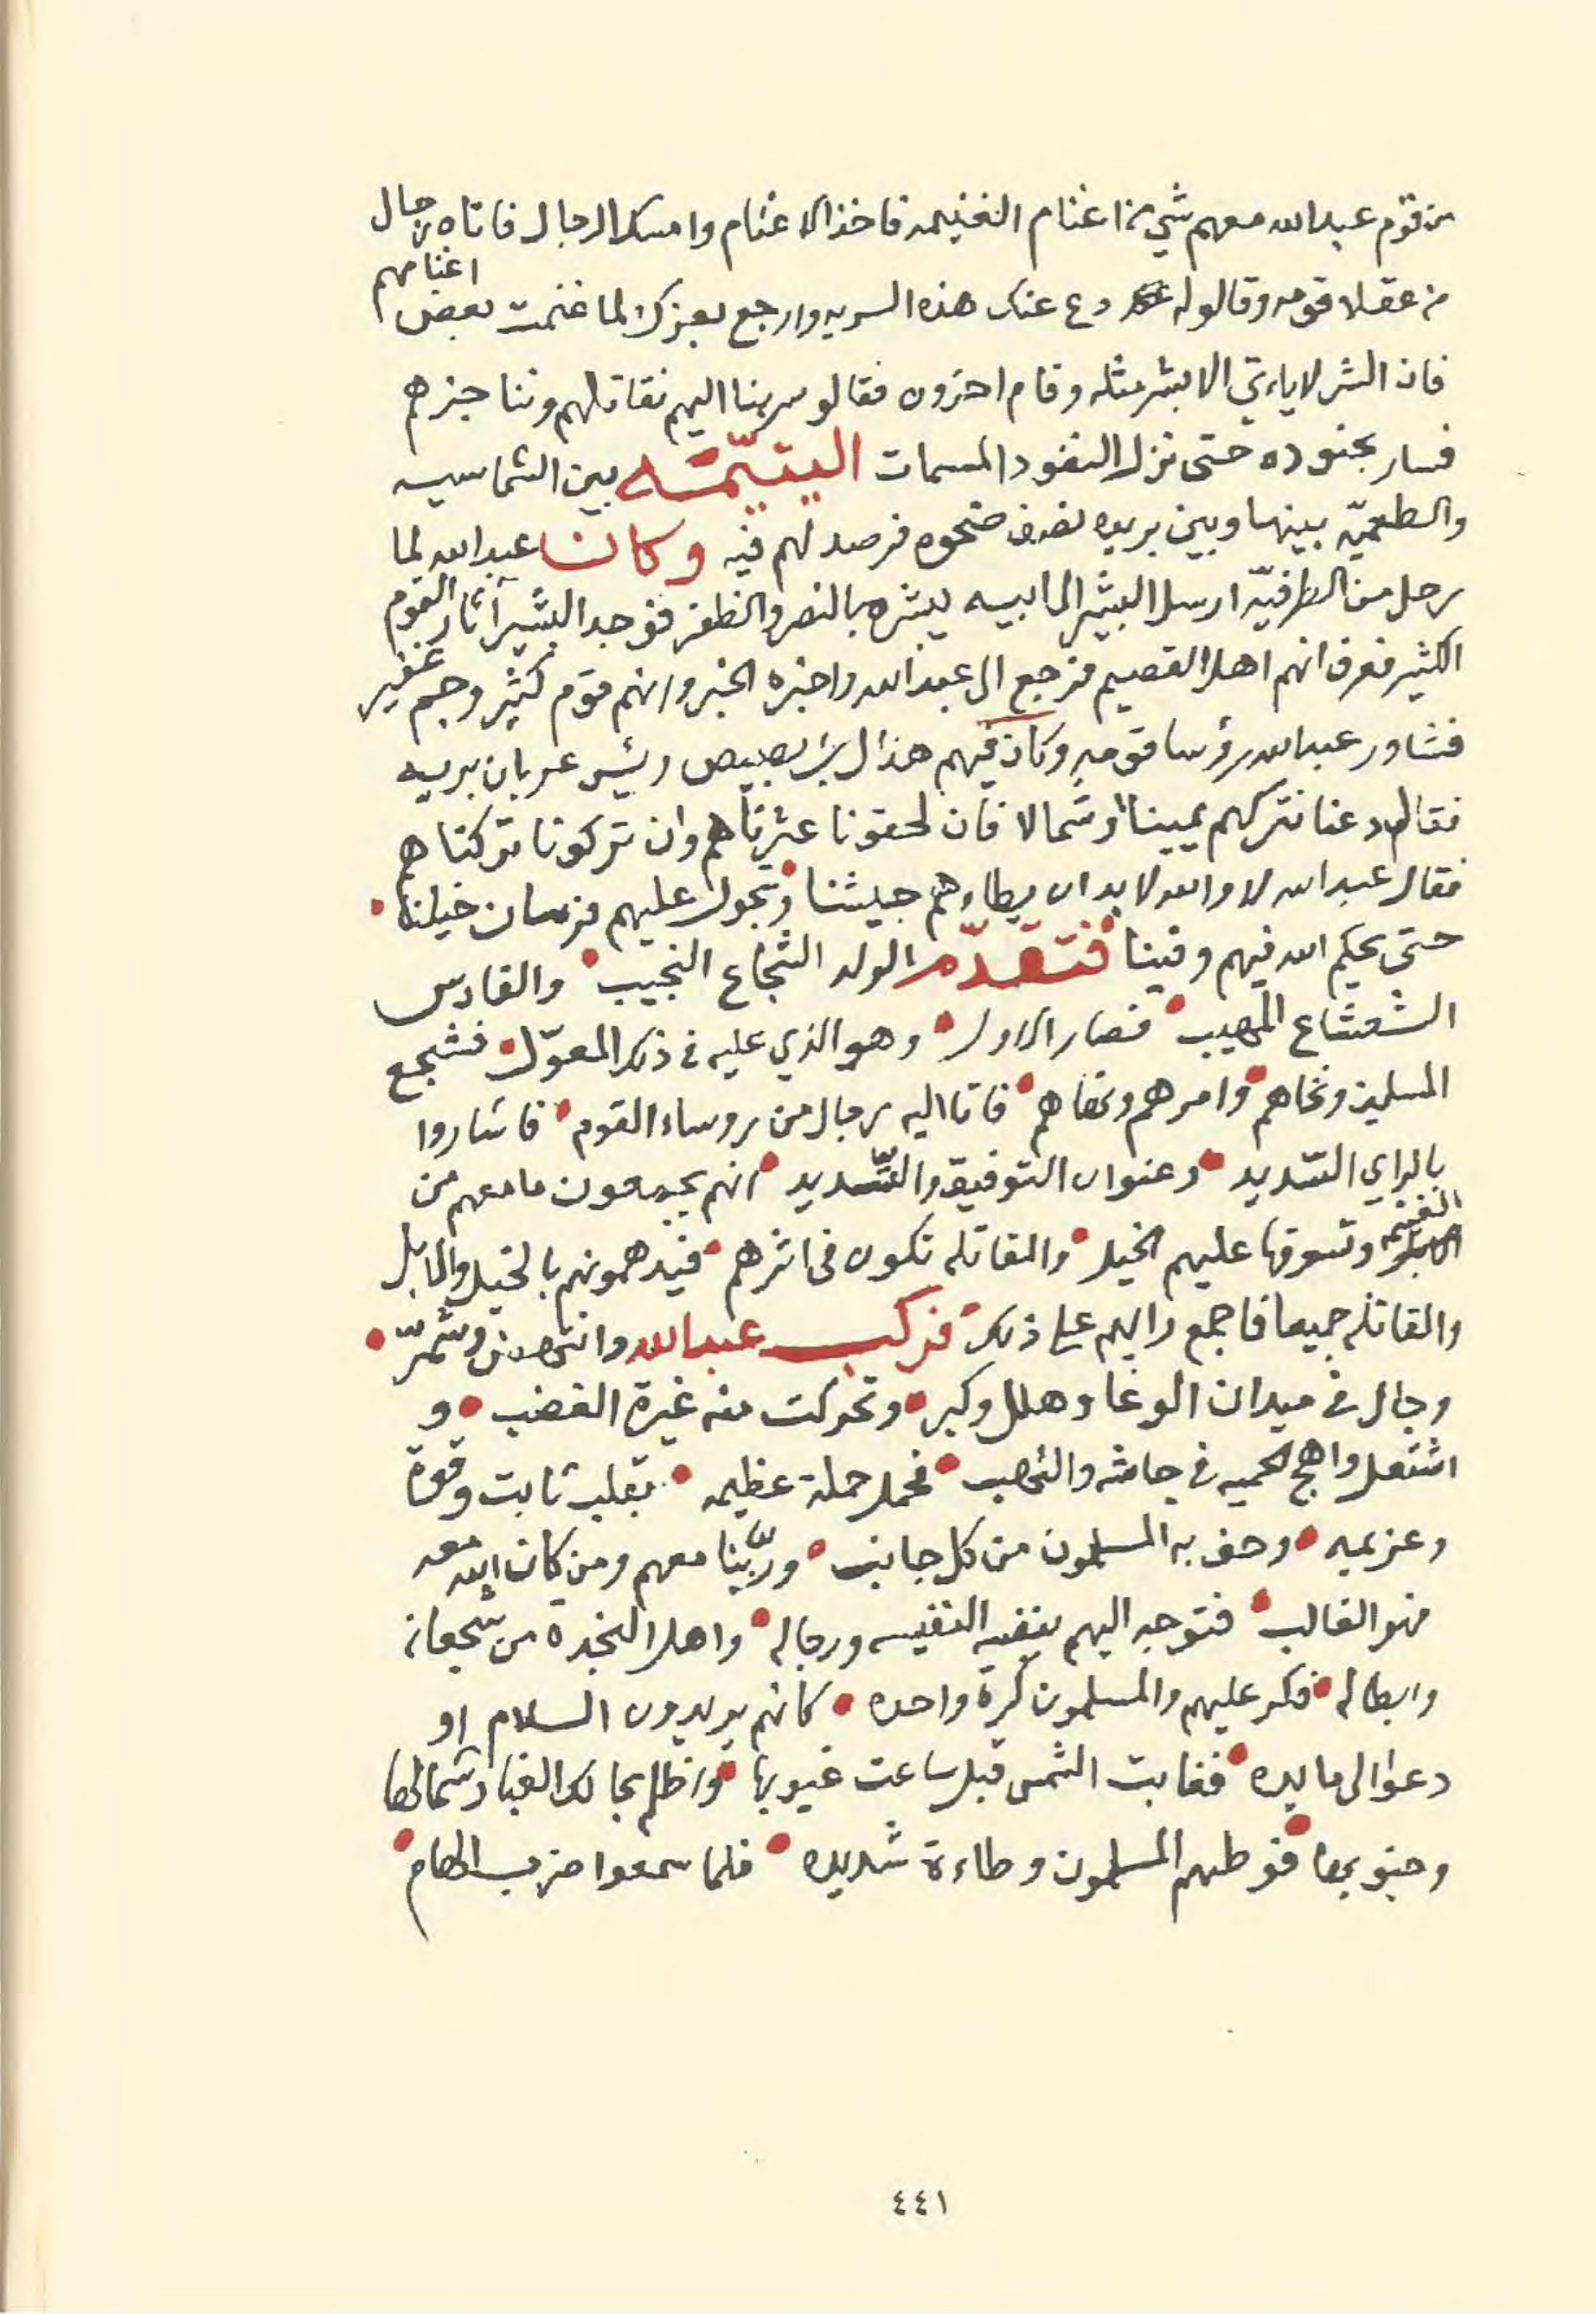 من قوم عبدالله معهم شي من اغنام الغنيمه فاخذ الاغنام وامسك الرجال فاتاه رجال
من عقلا قومه وقالوا له دع عنك هذه السريه وارجع بعزك لما غنمت بعض اغنامهم
فان الشر لا ياءتي الا بشر مثله وقام اخرون فقالو سر بنا اليهم نقاتلهم ونناجزهم
فسار بجنوده حتى نزل النفود المسمات اليتيّمه بين الشماسيه
والطعميّه بينها وبين بريده نصف ضحوه فرصد لهم فيه وكان عبدالله لما
رحل من الطرفيّه ارسل البشير الى ابيه يبشره بالنصر والظفر فوجد البشير آثار القوم
الكثير فعرف انهم اهل القصيم فرجع الى عبدالله واخبره الخبر وانهم قوم كثير وجم غفير
فشاور عبدالله رؤسا قومه وكان فيهم هذال بن بصيص رئيس عربان بريه
فقال دعنا نتركهم يمينا او شمالا فان لحقونا عثرناهم وان تركونا تركناهم
فقال عبدالله لا والله لا بد ان يطاءهم جيشنا وتجول عليهم فرسان خيلنا
حتى يحكم الله فيهم وفينا فتقدّم الولد الشجاع النجيب والفارس
الشعشاع المهيب فصار الاول وهو الذي عليه في ذلك المعوّل فشجع
المسلمين ونخاهم وامرهم ونهاهم فاتا اليه رجال من روساء القوم فاشاروا
بالراي السّديد وعنوان التوفيق والتّسديد انهم يجمعون ما معهم من
الغنيمه وتسوقها عليهم الخيل والمقاتله تكون في اثرهم فيدهمونهم بالخيل والابل
والمقاتله جميعا فاجمع رايهم على ذلك فركب عبدالله وانتهض وشمّر
وجال في ميدان الوغا وهلل وكبر وتحركت منه غيرة الغضب و
اشتعل واهج الحميه في جاشه والتهب فحمل حملة عظيمه بقلب ثابت وقوة
وعزيمه وحف به المسلمون من كل جانب وربّنا معهم ومن كان الله معه
فهو الغالب فتوجه اليهم بنفسه النفيسه ورجاله واهل النجدة من شجعانه
وابطاله فكر عليهم والمسلمون كرة واحده كانهم يريدون السلام او
دعوا الى مايده فغابت الشمس قبل ساعت غيوبها واظلم بحالك الغبار شمالها
وجنوبها فوطهم المسلمون وطاءة شديده فلما سمعوا ضرب الهام
٤٤١